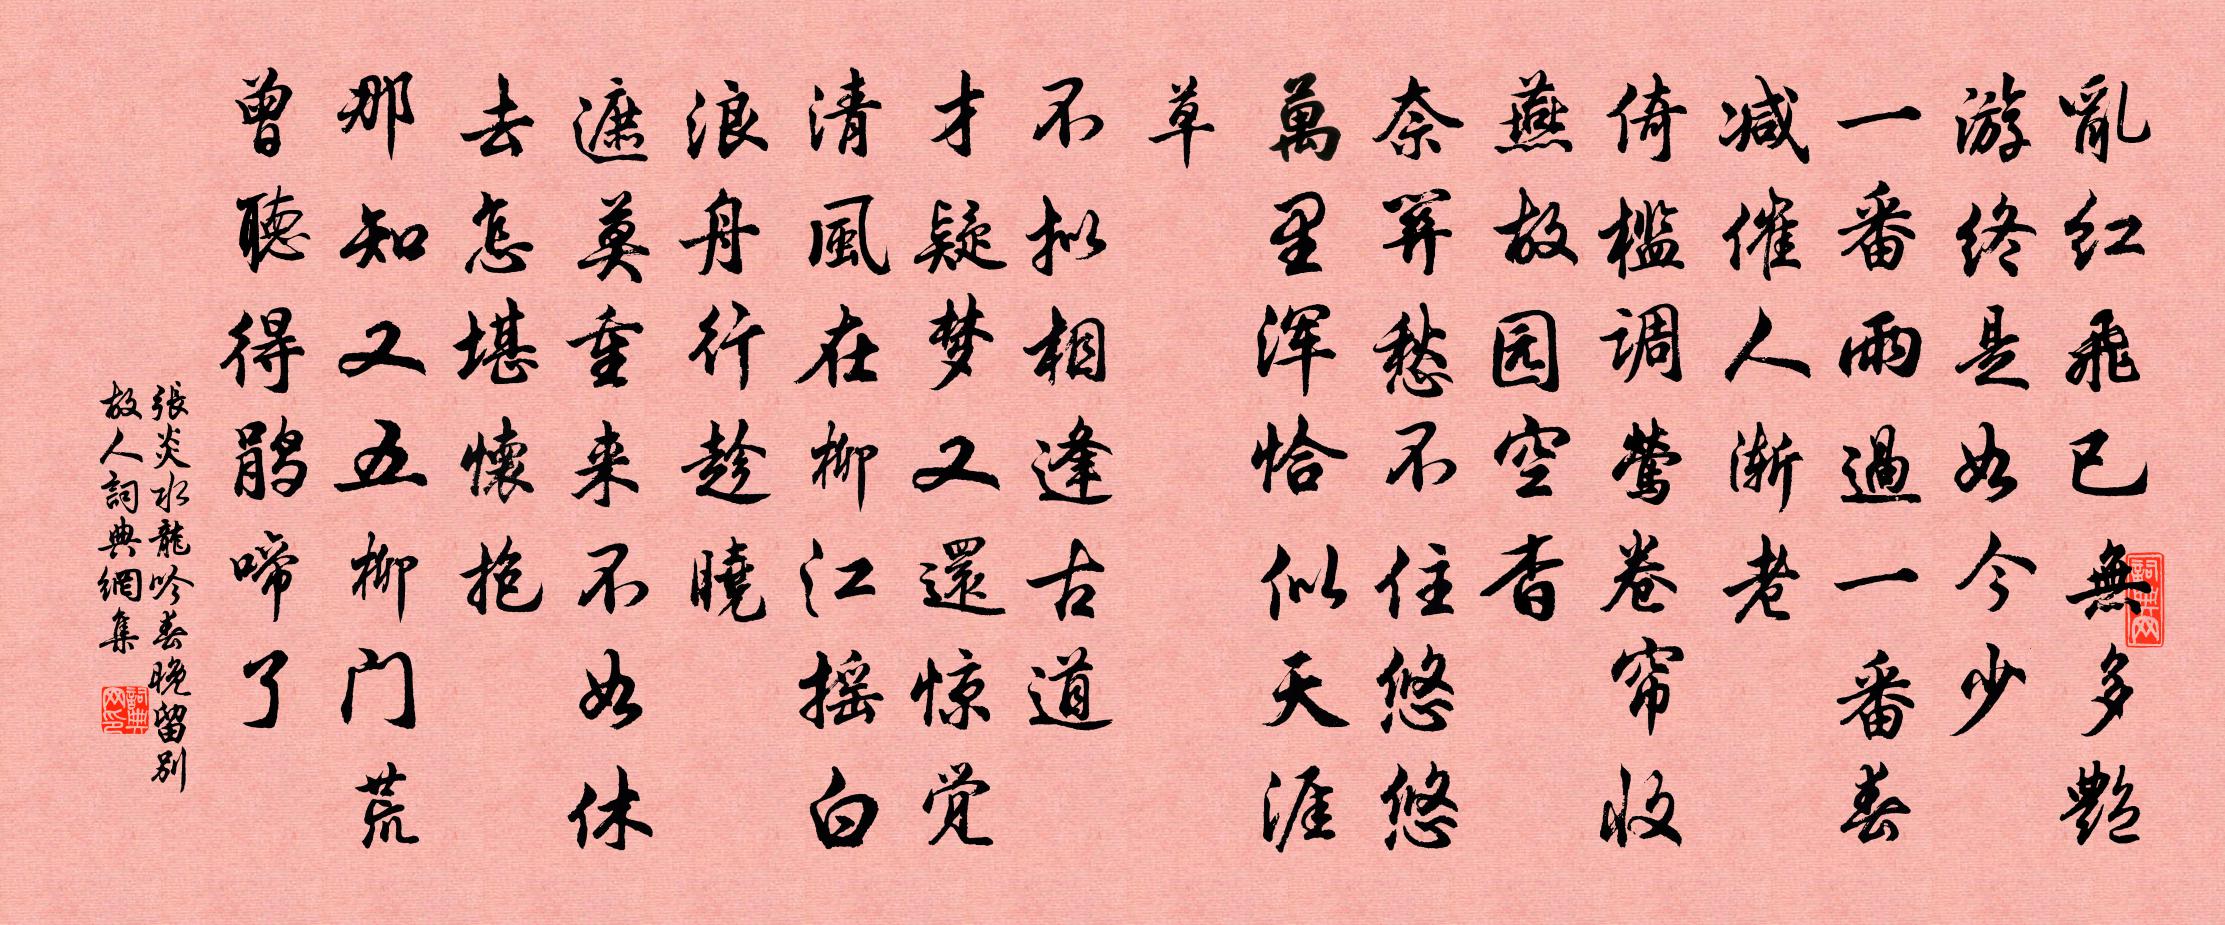 亂红飛已無多艶
游终是如今少
一番雨過一番春
减催人渐老
倚檻調鶯卷帘收
燕故园空杳
奈關愁不住悠悠
萬里浑恰似天涯
草
不拟相逢古道
才疑梦又還惊觉
清風在柳江摇白
浪舟行趁曉
遮莫重来不如休
去怎堪懷抱
那知又五柳门荒
曾聽得鹃啼了
張炎水龍吟春晚留別
故人詞典網集
詞典网
詞典网印